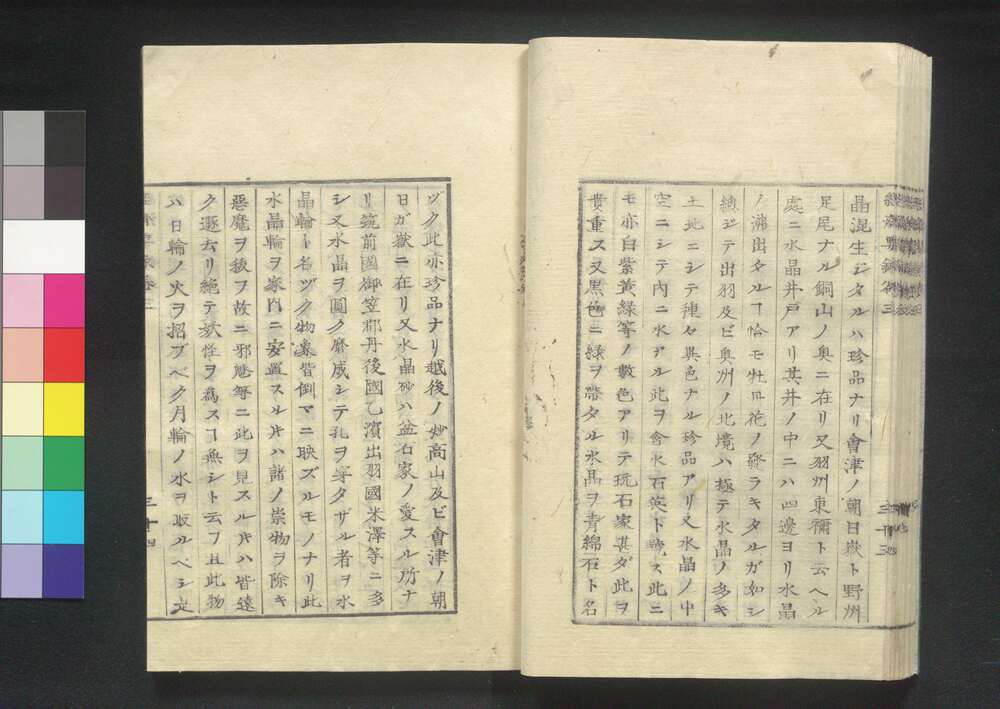 晶混生シタルハ珍品ナリ會津ノ朝日嶽ト野州
足尾ナル銅山ノ奧ニ在リ又羽州東禰ト云ヘル
處ニ水晶井戸アリ其井ノ中ニハ四邊ヨリ水晶
ノ沸出タルヿ恰モ牡丹花ノ發ラキタルガ如シ
總シテ出羽及ビ奧州ノ北境ハ極テ水晶ノ多キ
土地ニシテ種々異色ナル珍品アリ又水晶ノ中
空ニシテ內ニ水アル此ヲ含水石英ト號ス此ニ
モ亦白紫黃綠等ノ數色アリテ玩石家甚ダ此ヲ
貴重ス又黑色ニ綠ヲ帶タル水晶ヲ青綿石ト名
三十三
ヅク此亦珍品ナリ越後ノ妙高山及ビ會津ノ朝
日ガ嶽ニ在リ又水晶砂ハ盆石家ノ愛スル所ナ
リ筑前國御笠郡丹後國乙濱出羽國米澤等ニ多
シ又水晶ヲ圓ク磨成シテ孔ヲ穿タザル者ヲ水
晶輪ト名ヅク物象皆倒マニ映ズルモノナリ此
水晶輪ヲ家內ニ安置スル片ハ諸ノ祟物ヲ除キ
惡魔ヲ後フ故ニ邪魅等ニ此ヲ見スル片ハ皆遠
ク遯去リ絕テ妖怪ヲ爲スヿ無シト云フ且此物
ハ日輪ノ火ヲ招ブベク月輪ノ水ヲ取ルベシ是
三十四